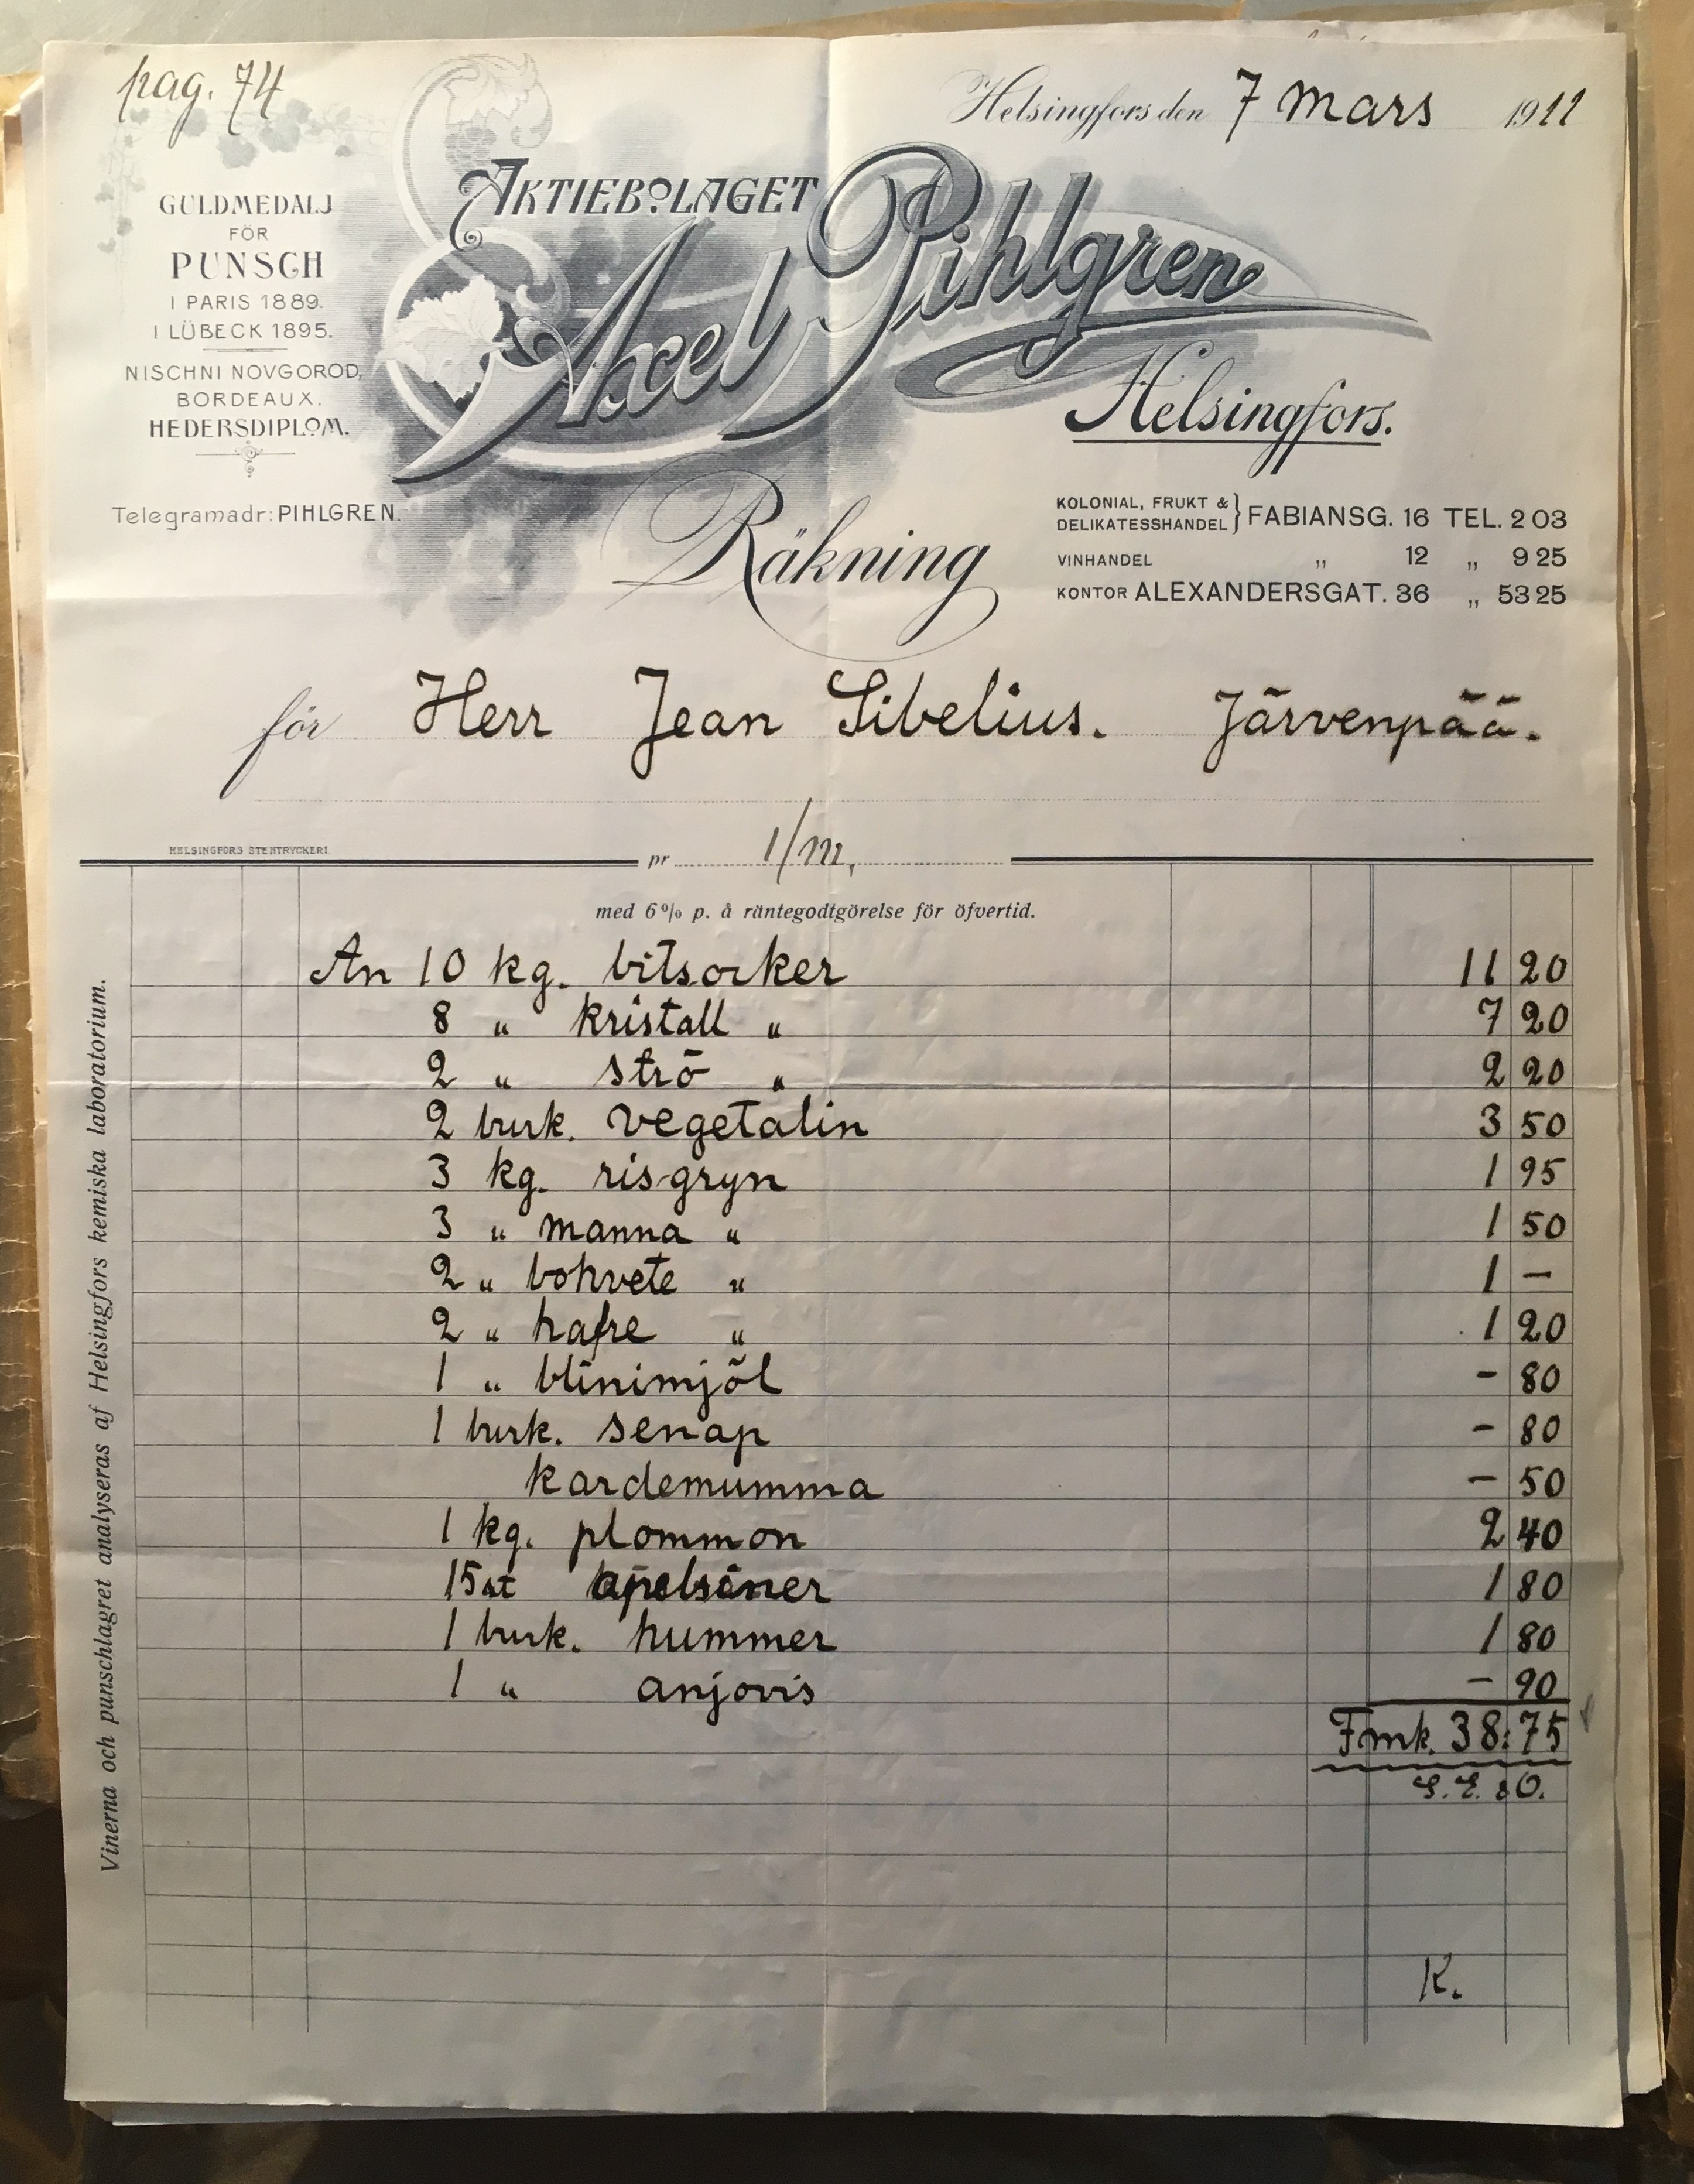 pag. 74
Helsingfors den 7 mars 1911
GULDMEDALJ
FÖR
PUNSCH
I PARIS 1889.
I LÜBECK 1895.
NISCHNI NOVGOROD,
BORDEAUX.
HEDERSDIPLOM.
Telegramadr: PIHLGREN.
AKTIEBOLAGET
Axel Pihlgren
Helsingfors.
Räkning
KOLONIAL, FRUKT & DELIKATESSHANDEL } FABIANSG. 16 TEL. 2 03
VINHANDEL „ 12 „ 9 25
KONTOR ALEXANDERSGAT. 36 „ 53 25
för Herr Jean Sibelius. Järvenpää.
HELSINGFORS STENTRYCKERI.
pr 1/m.
med 6% p. å räntegodtgörelse för öfvertid.
An 10 kg. bitsocker 11 20
8 " kristall " 7 20
2 " strö " 2 20
2 burk. vegetalin 3 50
3 kg. ris-gryn 1 95
3 " manna " 1 50
2 " bohvete " 1 —
2 " hafre " 1 20
1 " blinimjöl - 80
1 burk. senap - 80
kardemumma - 50
1 kg. plommon 2 40
15 st apelsiner 1 80
1 burk. hummer 1 80
1 " anjovis - 90
Fmk. 38:75
S. E. & O.
K.
Vinerna och punschlagret analyseras af Helsingfors kemiska laboratorium.